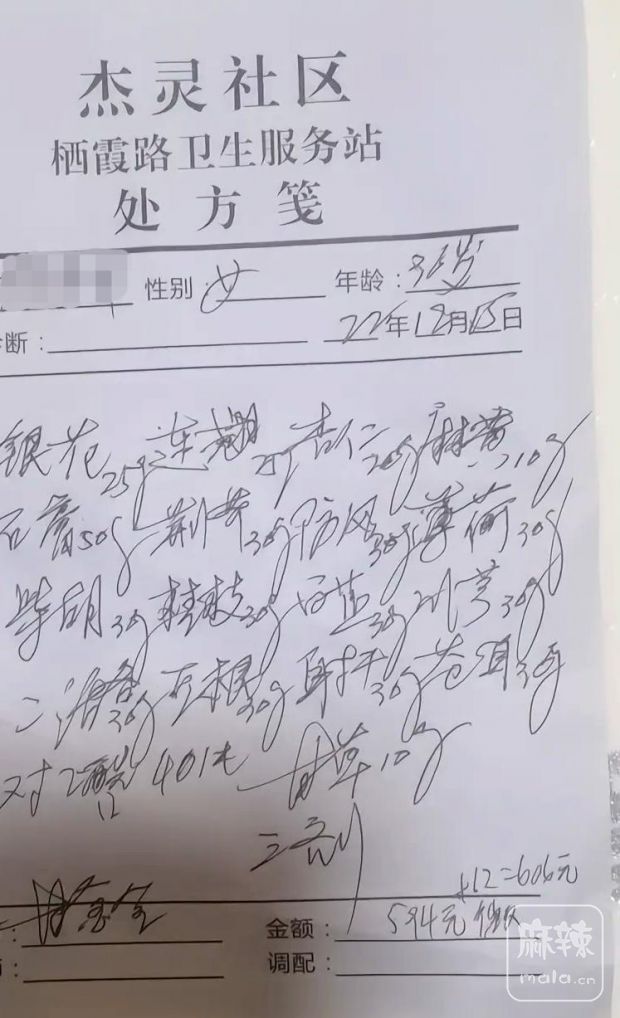 杰灵社区
栖霞路卫生服务站
处方笺
性别:女 年龄:36岁
断: 22年12月15日
银花25g 连翘25g 杏仁20g 麻黄10g
石膏50g 荆芥30g 防风30g 薄荷30g
柴胡30g 桂枝30g 白芷30g 川芎30g
二活各30g 豆根30g 射干30g 苍耳30g
对乙酰 40 甘草10g
三剂
+12=606元
金额: 594元
调配:
麻辣
mala.cn